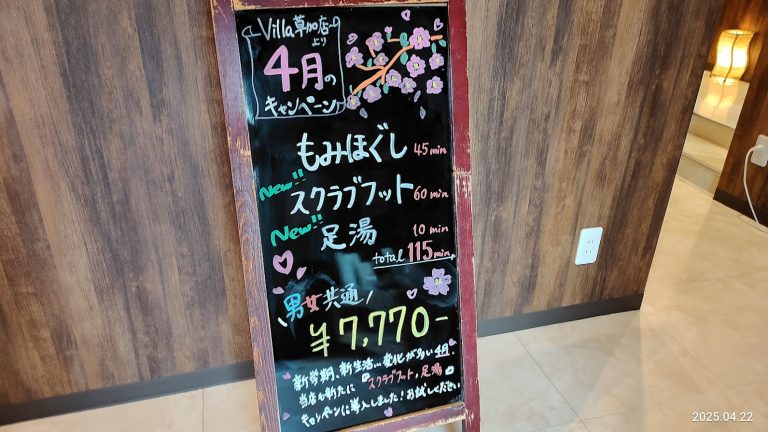 Villa草加店
より
4月の
キャンペーン
もみほぐし 45min
New!! スクラブフット 60min
New!! 足湯 10min
total 115min
男女共通
¥7,770-
新学期、新生活…変化が多い4月.
当店が新たに『スクラブフット,足湯』
キャンペーンに導入しました!お試しください
2025.04.22